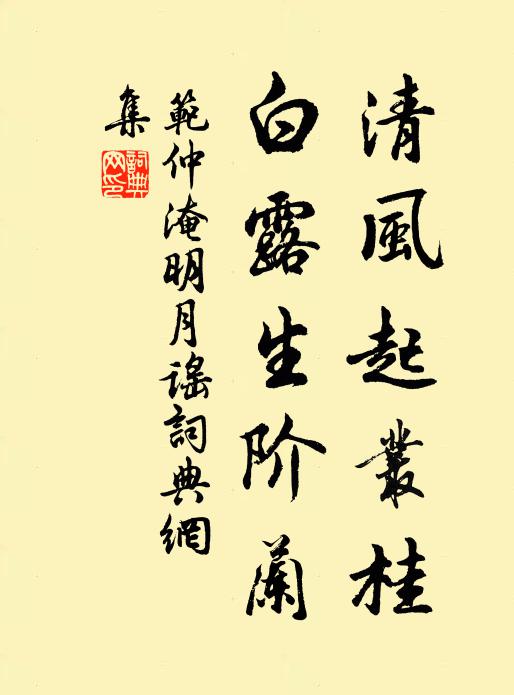 清風起叢桂
白露生阶蘭
範仲淹明月謠詞典網
集
詞典網印